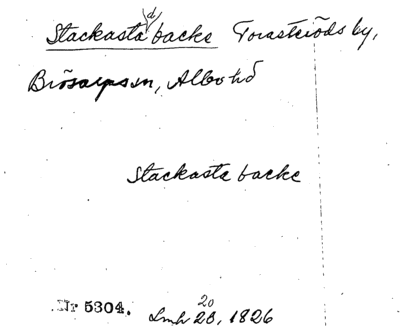 Stackasta d backe Torasteröds by,
Brösarps sn, Albo hd
Stackasta backe
Nr 5304. Lmh 20 23, 1826